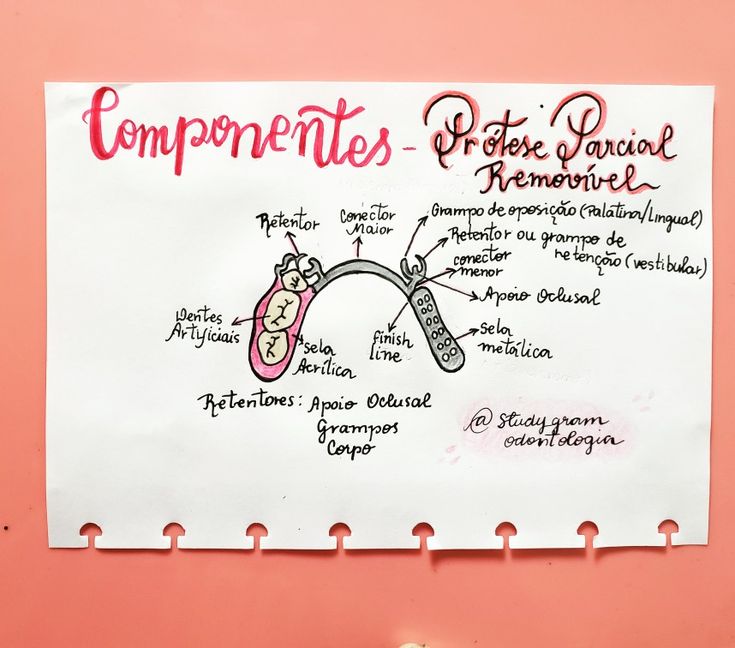 Componentes - Prótese Parcial
Removível
Retentor
Conector
Maior
Grampo de oposição (Palatina/Lingual)
Retentor ou grampo de
retenção (vestibular)
conector
menor
Apoio Oclusal
Dentes
Artificiais
sela
Acrílica
finish
line
sela
metálica
Retentores: Apoio Oclusal
Grampos
Corpo
@studygram
odontologia